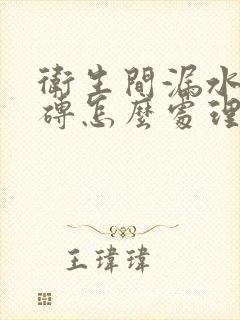 衛生間漏水
磚怎麼處理
王瑋瑋